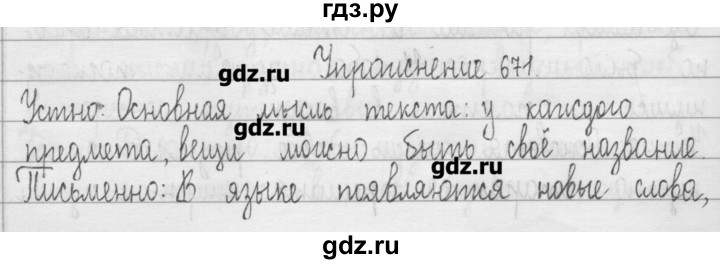 гдз.ру
Упражнение 671.
gdz.ru
Устно: Основная мысль текста: у каждого
gdz.ru
предмета, вещи можно быть своё название.
Письменно: В языке появляются новые слова,
gdz.ru